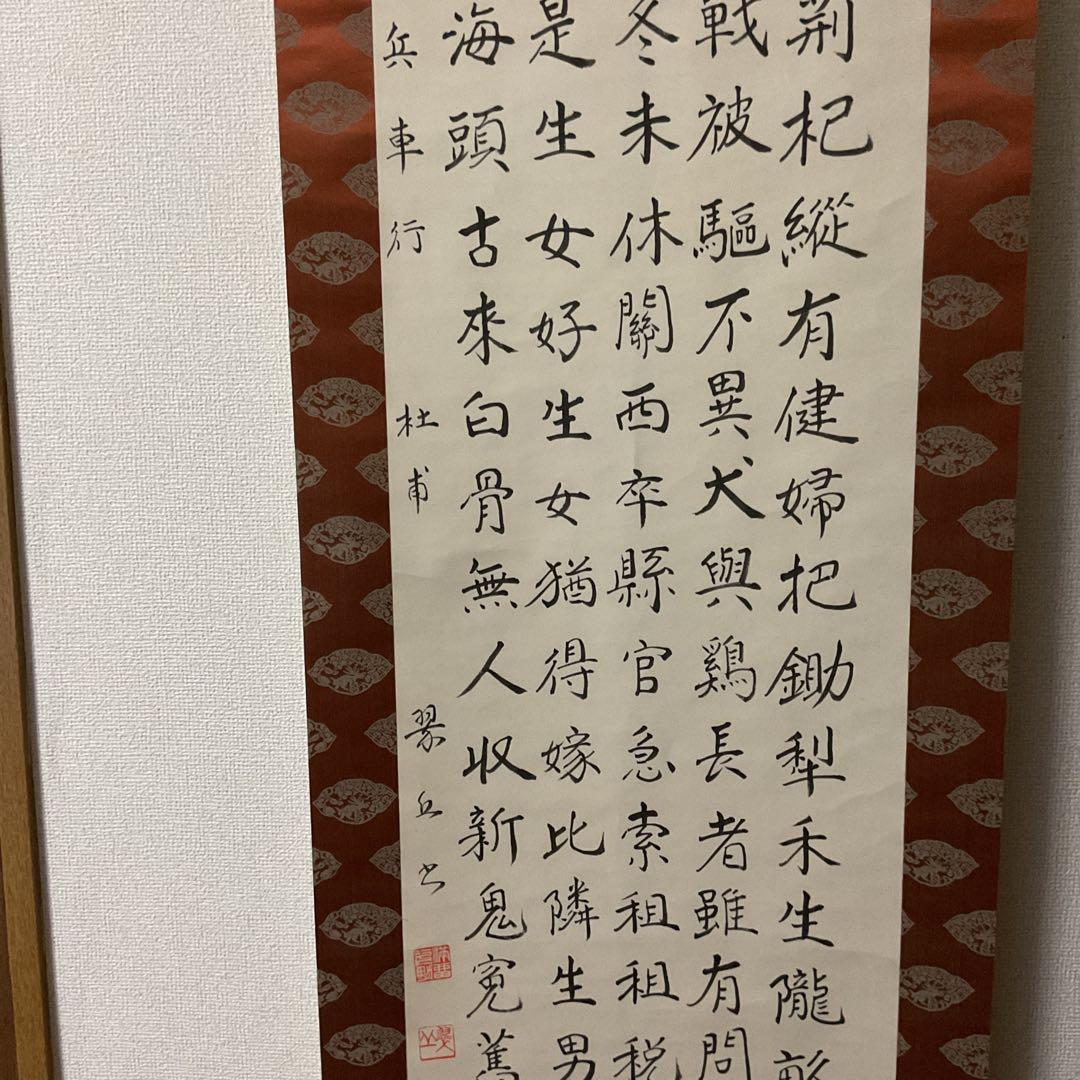 荆杞縱有健婦把鋤犁禾生隴畝
戦被驅不異犬與鷄長者雖有問
冬未休關西卒縣官急索租租税
是生女好生女猶得嫁比隣生男
海頭古來白骨無人収新鬼寃舊
兵車行 杜甫 翠丘书